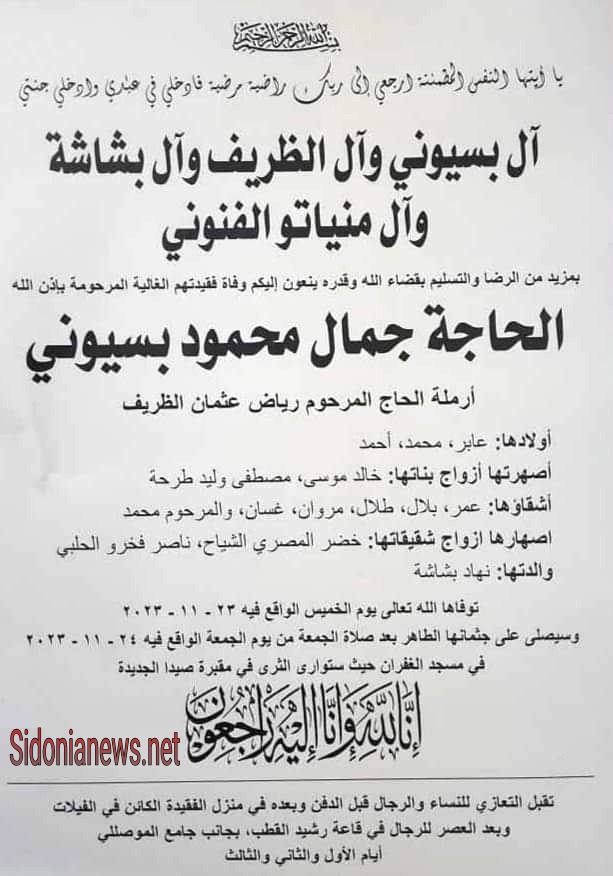 بسم الله الرحمن الرحيم
يا أيتها النفس المطمئنة ارجعي إلى ربك راضية مرضية فادخلي في عبادي وادخلي جنتي
آل بسيوني وآل الظريف وآل بشاشة
وآل منياتو الفنوني
بمزيد من الرضا والتسليم بقضاء الله وقدره ينعون إليكم وفاة فقيدتهم الغالية المرحومة بإذن الله
الحاجة جمال محمود بسيوني
أرملة الحاج المرحوم رياض عثمان الظريف
أولادها: عابر، محمد، أحمد
أصهرتها أزواج بناتها: خالد موسى، مصطفى وليد طرحة
أشقاؤها: عمر، بلال، طلال، مروان، غسان، والمرحوم محمد
اصهارها ازواج شقيقاتها: خضر المصري الشياح، ناصر فخرو الحلبي
والدتها: نهاد بشاشة
توفاها الله تعالى يوم الخميس الواقع فيه ٢٣ - ١١ - ٢٠٢٣
وسيصلى على جثمانها الطاهر بعد صلاة الجمعة من يوم الجمعة الواقع فيه ٢٤ - ١١ - ٢٠٢٣
في مسجد الغفران حيث ستوارى الثرى في مقبرة صيدا الجديدة
إنا لله وإنا إليه راجعون
Sidonianews.net
تقبل التعازي للنساء والرجال قبل الدفن وبعده في منزل الفقيدة الكائن في الفيلات
وبعد العصر للرجال في قاعة رشيد القطب، بجانب جامع الموصللي
أيام الأول والثاني والثالث